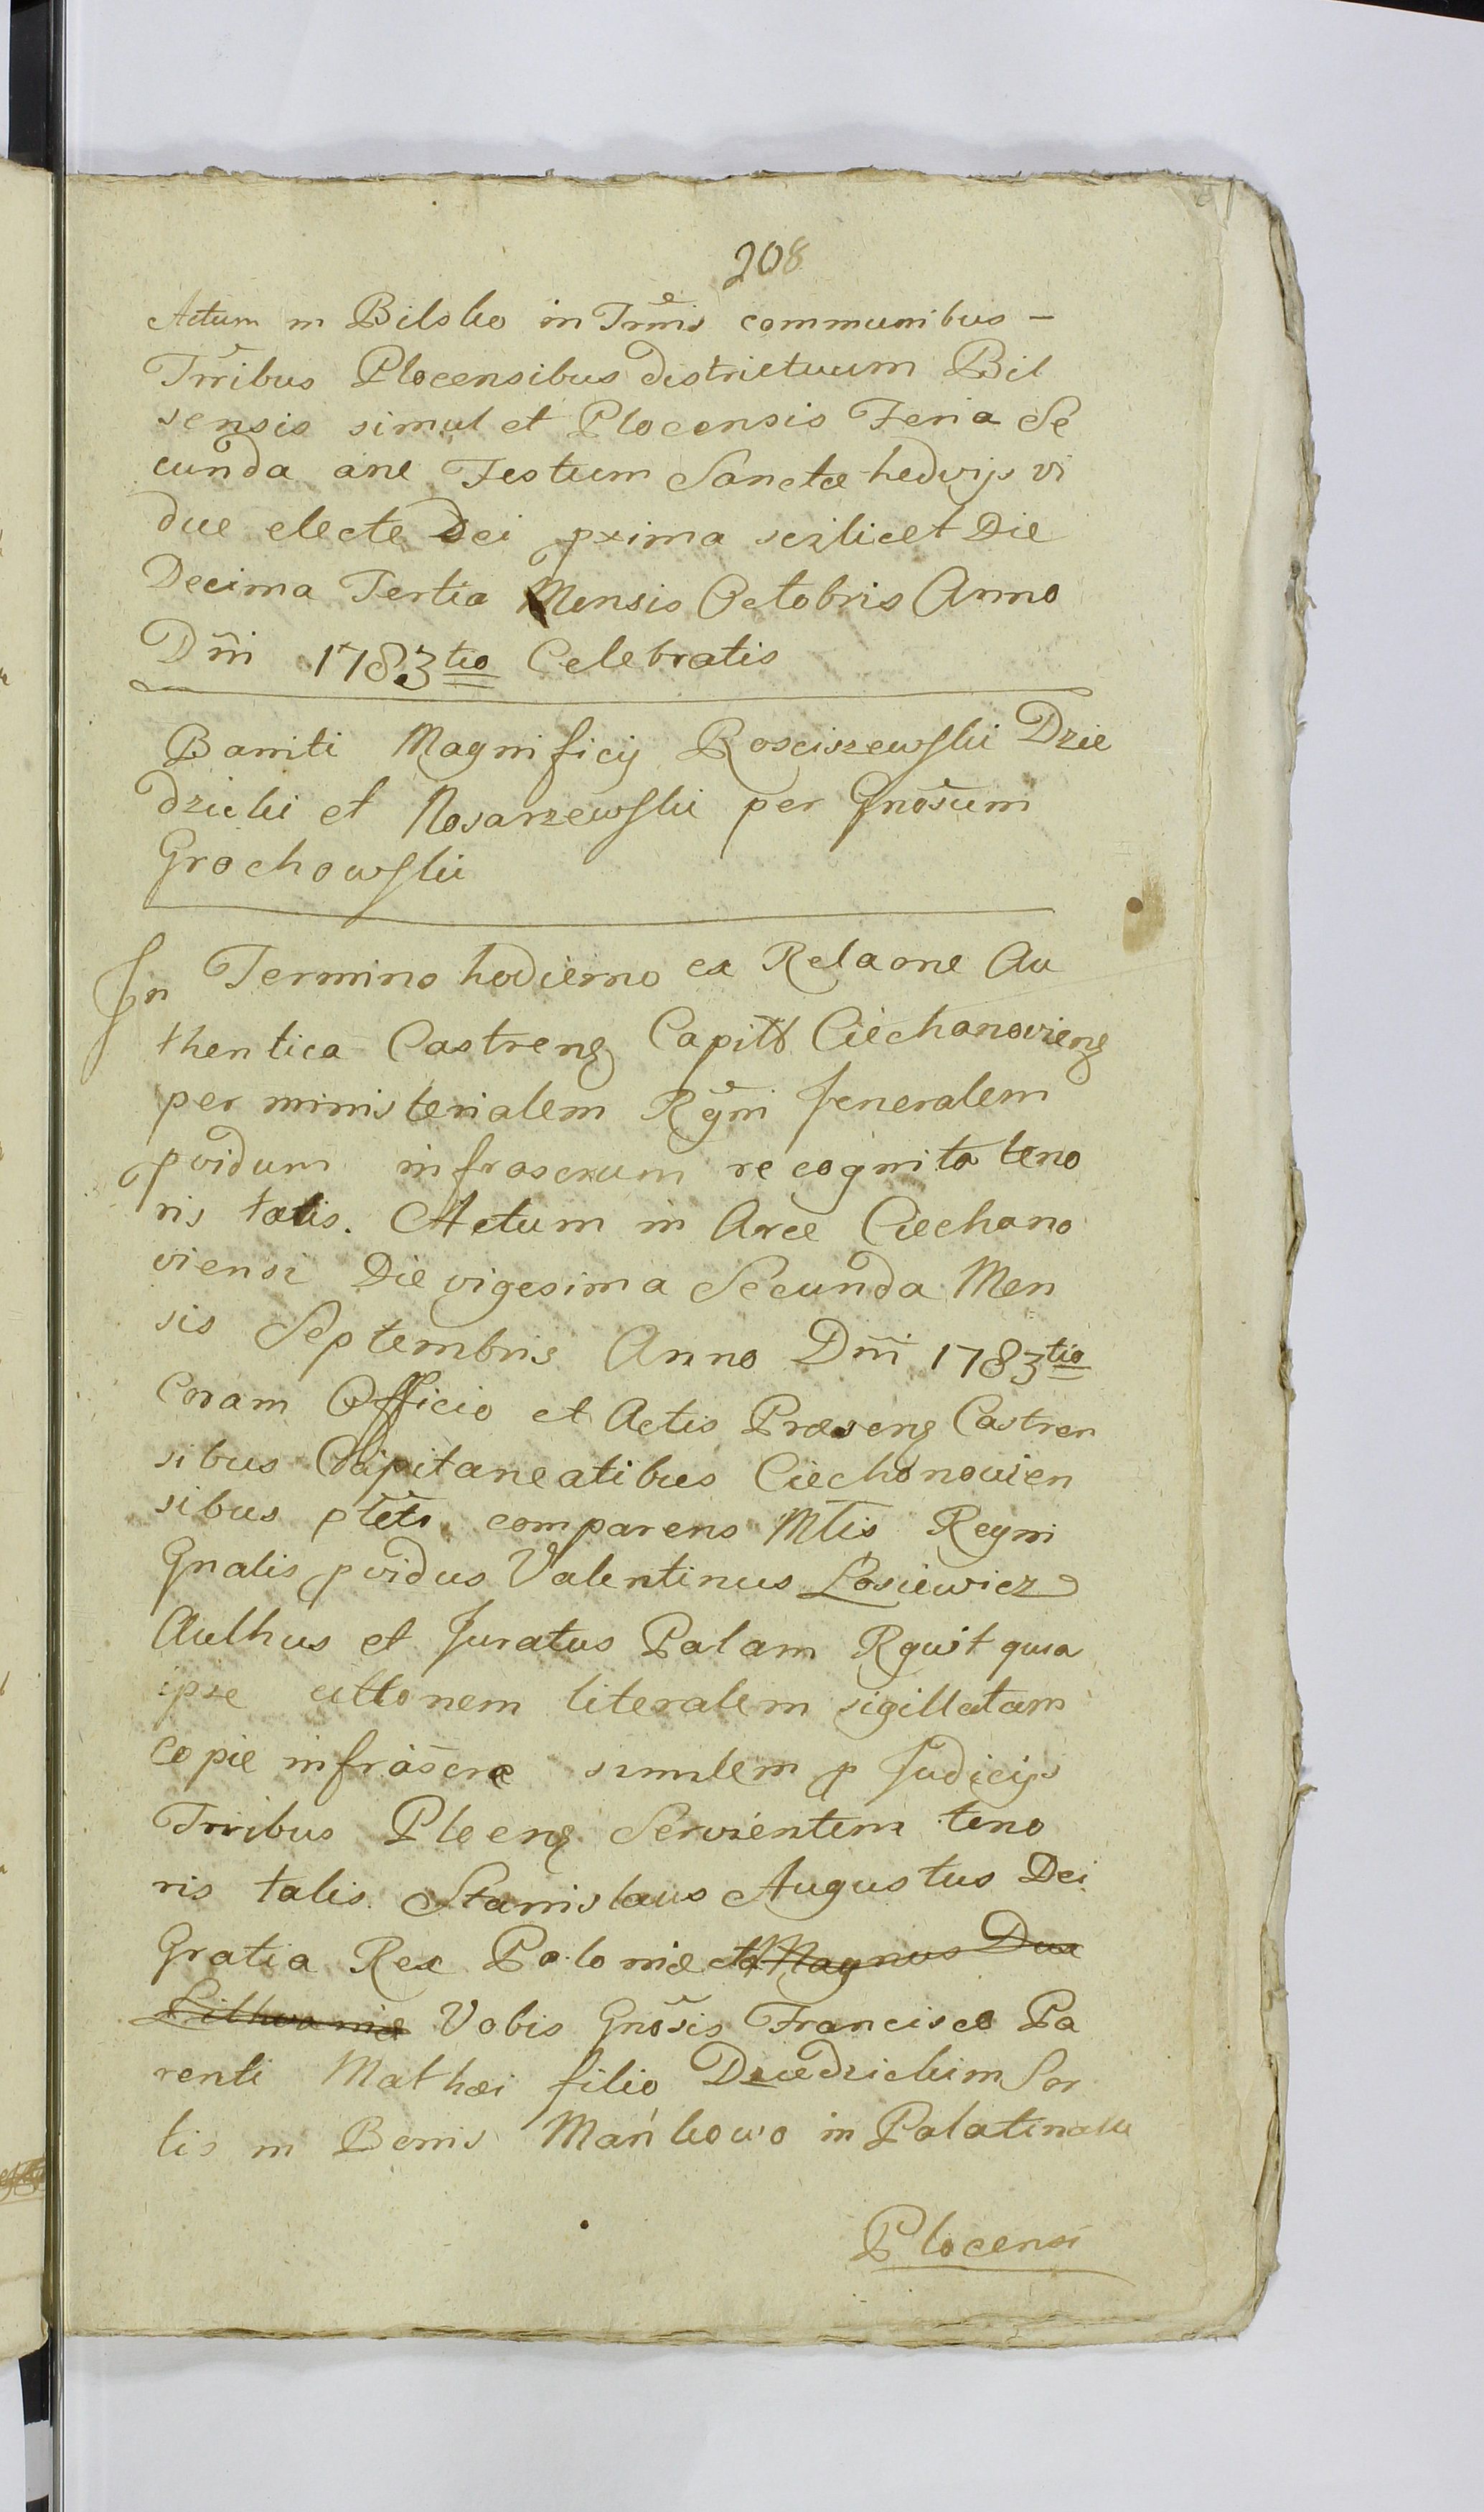 208
Actum in Bilsko in Trmis communibus –
Trribus Plocensibus districtuum Bil
sensis simul et Plocensis Feria Se
cunda ane Festum Sanctæ hedvijs vi
due electe Dei pxima sczlicet Die
Decima Tertia Mensis Octobris Anno
Dni 1783tio Celebratis
Baniti Magnificij Rosciszewski Dzie
dzicki et Nosarzewski per Gnosum
Grochowski
In Termino hodierno ex Relaone Au
thentica Castreng Capitt Ciechanovieng
per ministerialem Rgni Jeneralem
pvidum infrascrum recognita teno
ris talis. Actum in Arce Ciechano
viensi Die vigesima Secunda Men
sis Septembris Anno Dni 1783tio
Coram Officio et Actis Præseng Castren
sibus Capitaneatibus Ciechonovien
sibus pltr comparens Mtis Regni
Gnalis pvidus Valentinus Łosiewicz
Authus et Juratus Palam Rguit quia
ipse cittonem literalem sigillatam
Copie infrascræ similem p Judicijs
Trribus Ploceng Servientem teno
ris talis. Stanislaus Augustus Dei
Gratia Rex Poloniæ et Magnus Dux
Lithvaniæ Vobis Gnosis Francisco Pa
renti Mathæi filio Dziedzickim Sor
tis in Bonis Mańkowo in Palatinatu
Plocensi